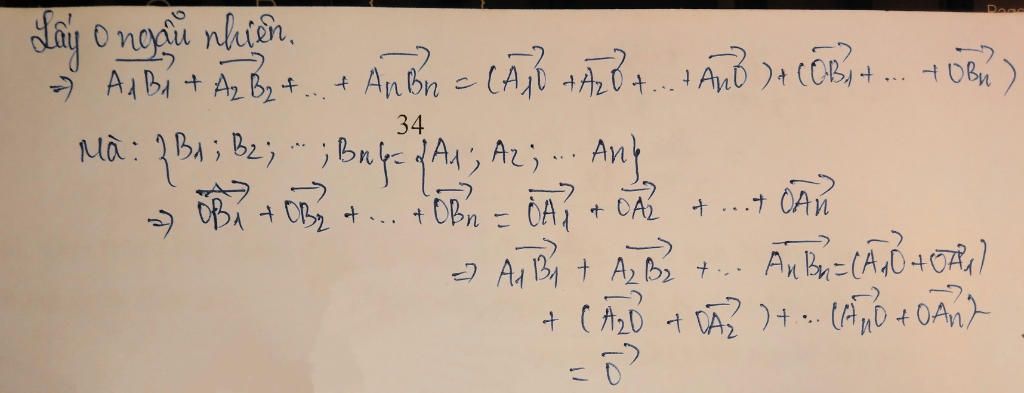 Lấy O ngẫu nhiên.
⇒ $\overrightarrow{A_1B_1} + \overrightarrow{A_2B_2} + ... + \overrightarrow{A_nB_n} = (\overrightarrow{A_1O} + \overrightarrow{A_2O} + ... + \overrightarrow{A_nO}) + (\overrightarrow{OB_1} + ... + \overrightarrow{OB_n})$
34
Mà: $\{B_1; B_2; ...; B_n\} = \{A_1; A_2; ... A_n\}$
⇒ $\overrightarrow{OB_1} + \overrightarrow{OB_2} + ... + \overrightarrow{OB_n} = \overrightarrow{OA_1} + \overrightarrow{OA_2} + ... + \overrightarrow{OA_n}$
⇒ $\overrightarrow{A_1B_1} + \overrightarrow{A_2B_2} + ... \overrightarrow{A_nB_n} = (\overrightarrow{A_1O} + \overrightarrow{OA_1})$
$+ (\overrightarrow{A_2O} + \overrightarrow{OA_2}) + ... (\overrightarrow{A_nO} + \overrightarrow{OA_n})$
$= \overrightarrow{0}$